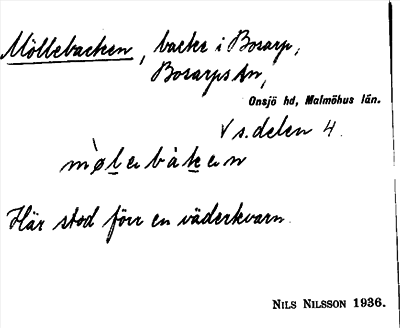 Möllebacken, backe i Bosarp,
Bosarps sn,
Onsjö hd, Malmöhus län.
V s. delen 4.
Här stod förr en väderkvarn.
NILS NILSSON 1936.